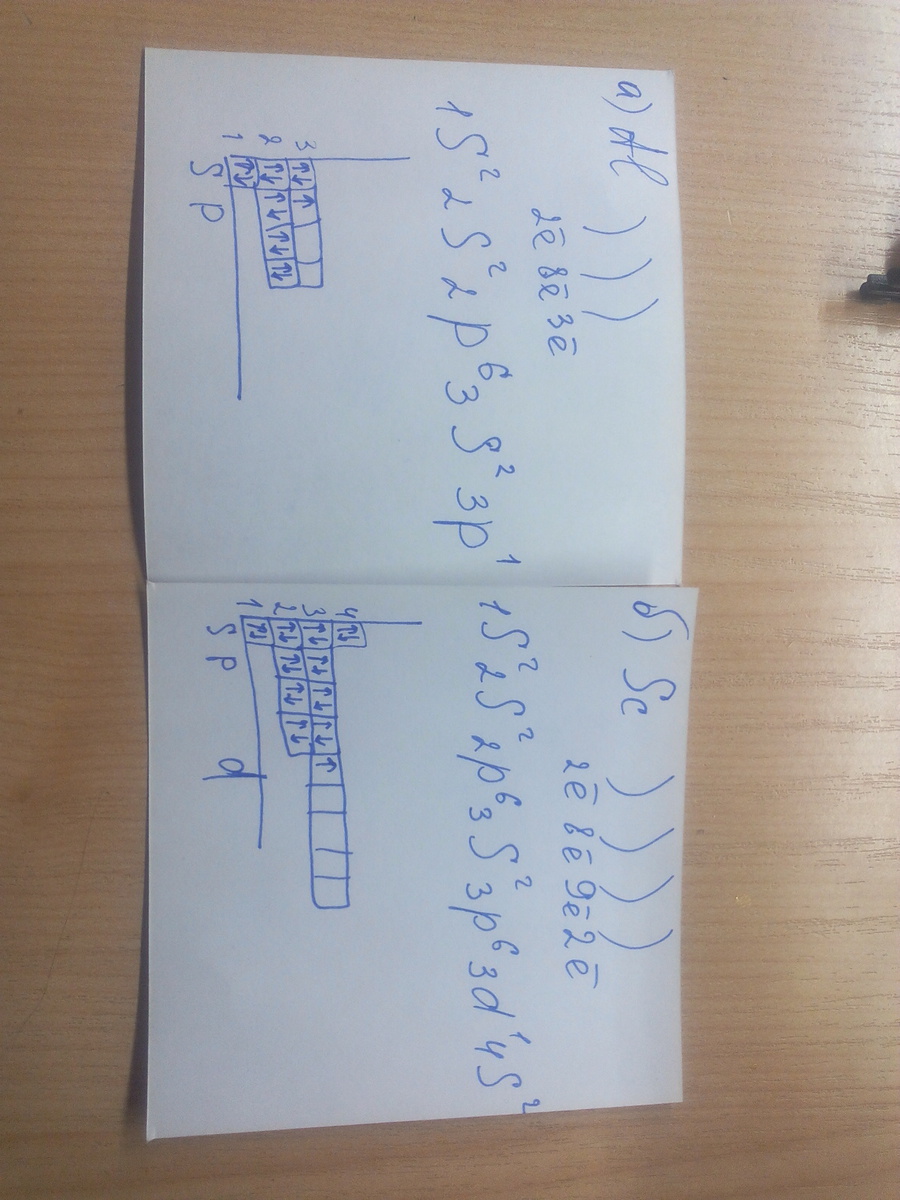 а) Al ) ) )
2ē 8ē 3ē
1S² 2S² 2p⁶ 3S² 3p¹
3 ↑↓ ↑
2 ↑↓ ↑↓ ↑↓ ↑↓
1 ↑↓
S p
б) Sc ) ) ) )
2ē 8ē 9ē 2ē
1S² 2S² 2p⁶ 3S² 3p⁶ 3d¹ 4S²
4 ↑↓
3 ↑↓ ↑↓ ↑↓ ↑↓ ↑
2 ↑↓ ↑↓ ↑↓ ↑↓
1 ↑↓
S p d